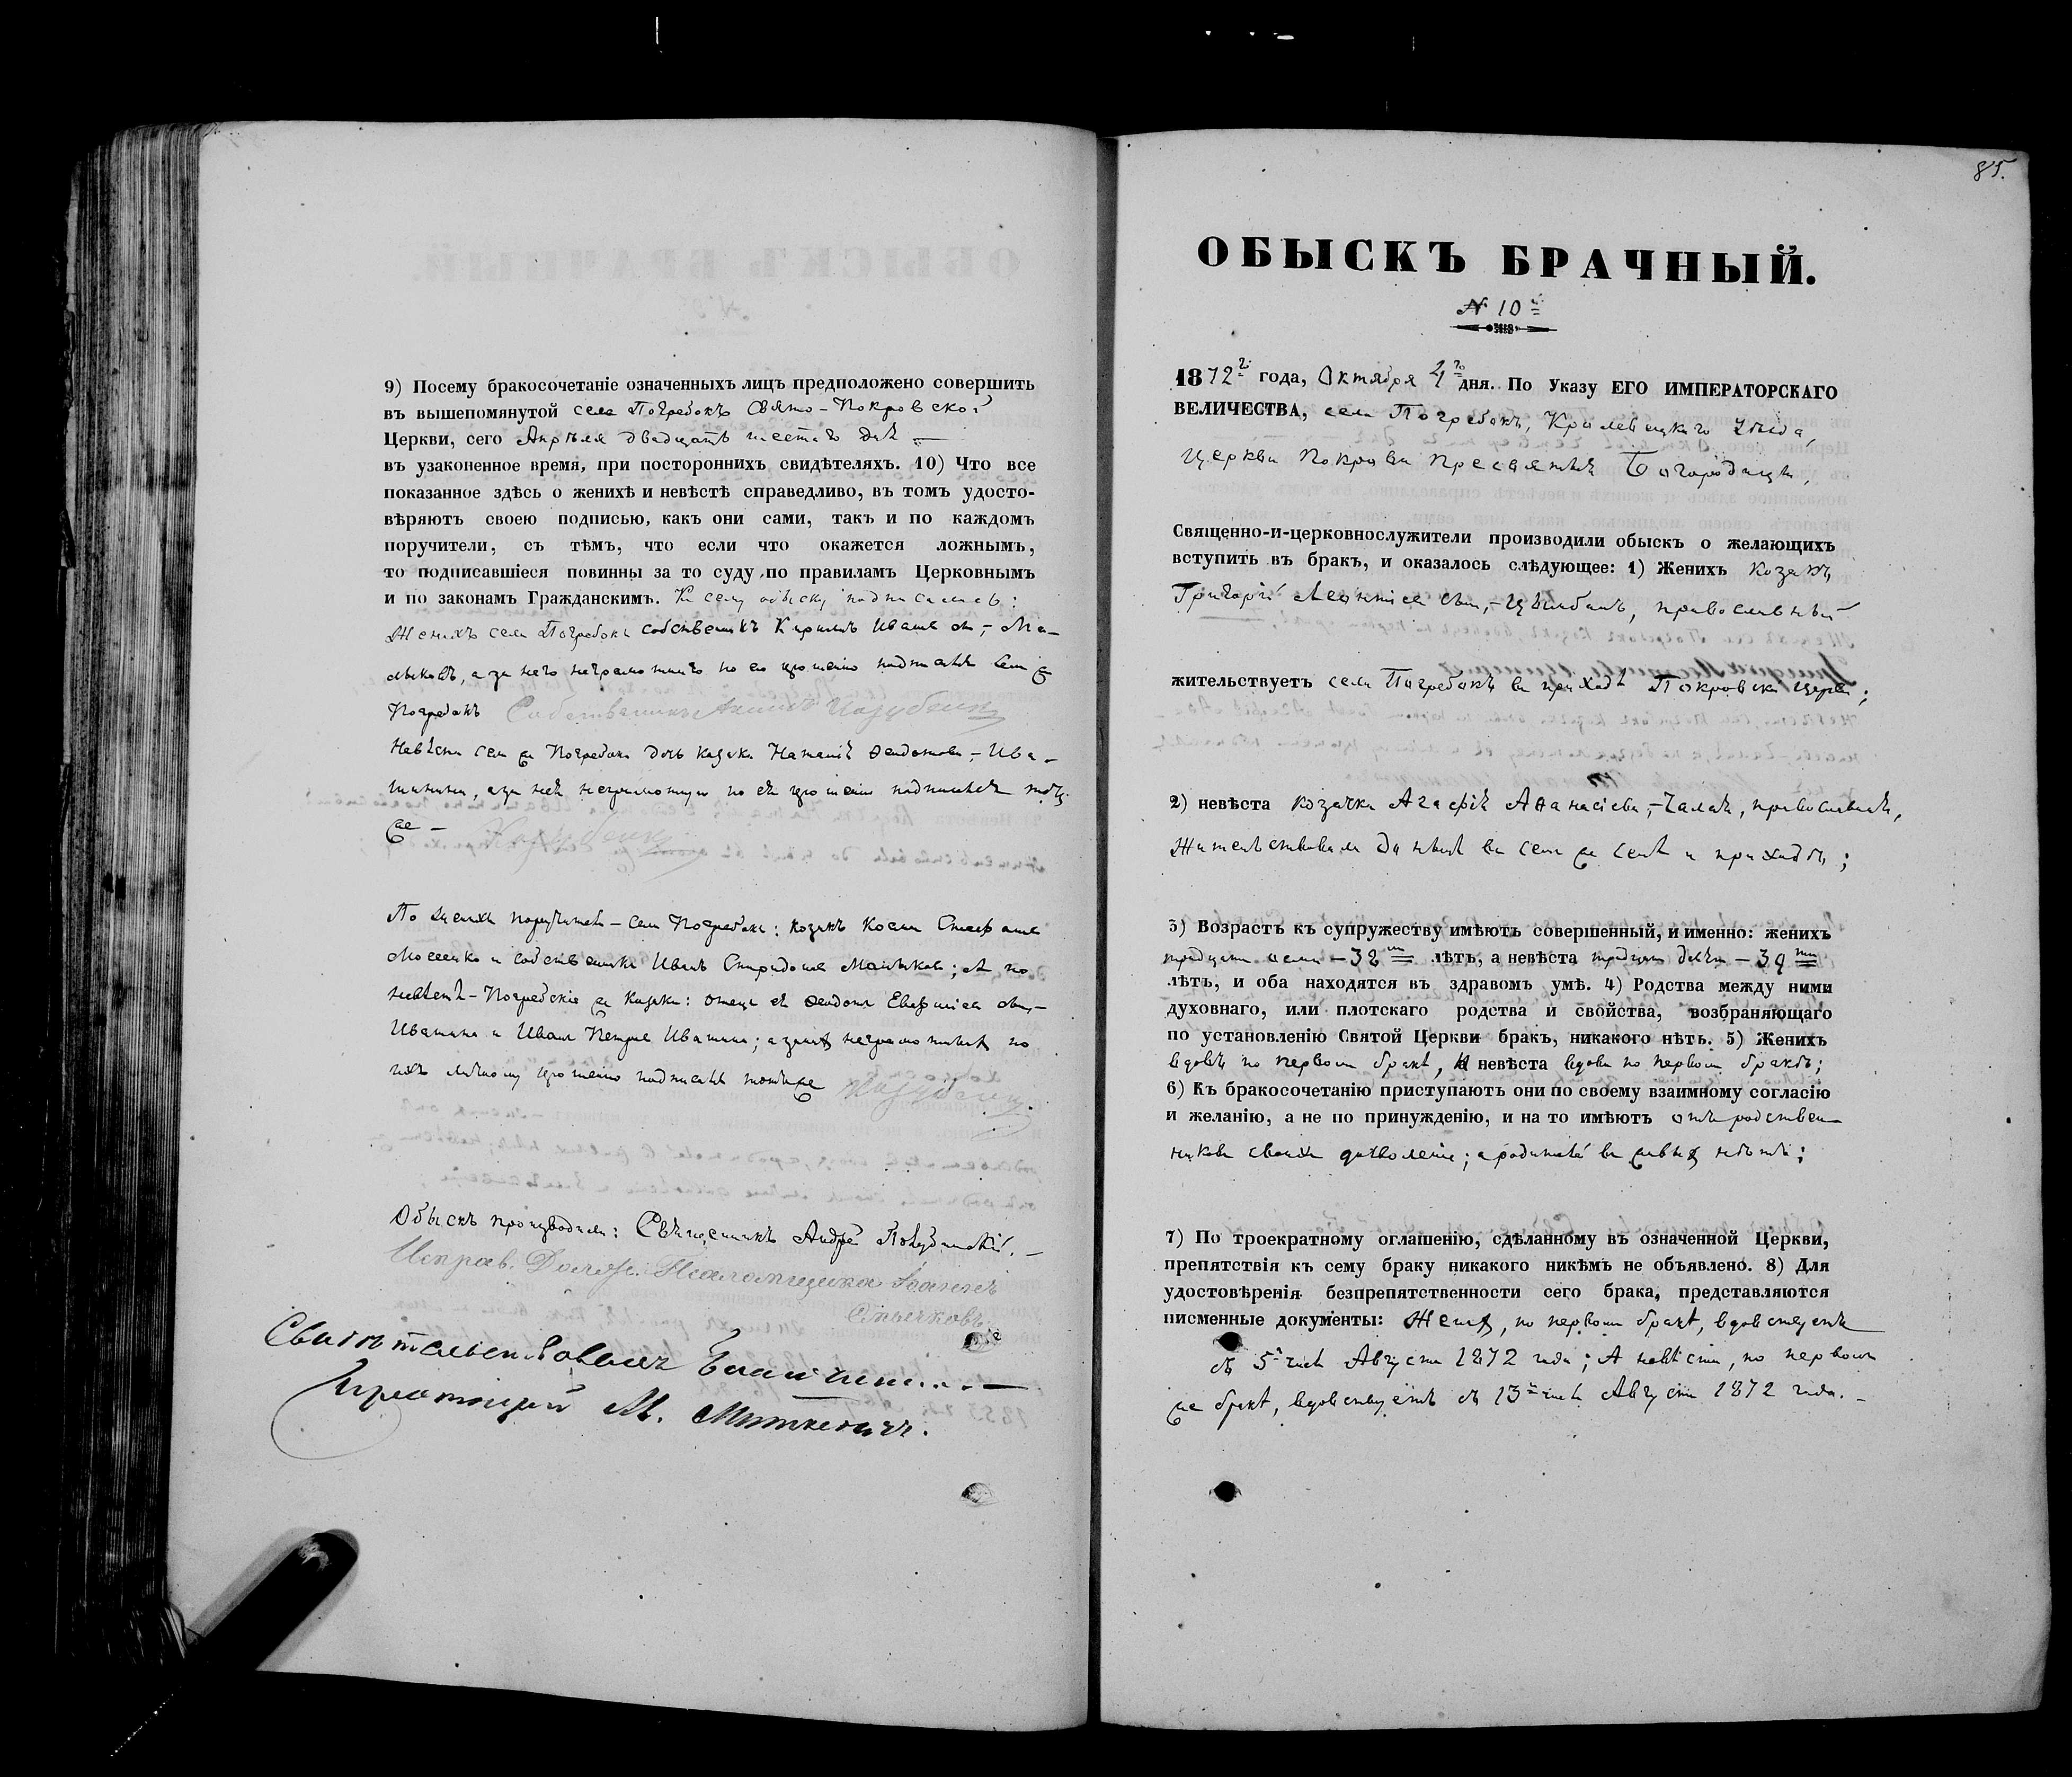 9) Посему бракосочетаніе означенныхъ лицъ предположено совершить
въ вышепомянутой села Погребокъ Свято-Покровской
Церкви, сего Апрѣля двадцать шестаго дня —
въ узаконенное время, при постороннихъ свидѣтеляхъ. 10) Что все
показанное здѣсь о женихѣ и невѣстѣ справедливо, въ томъ удосто-
вѣряютъ своею подписью, какъ они сами, такъ и по каждомъ
поручители, съ тѣмъ, что если что окажется ложнымъ,
то подписавшіеся повинны за то суду по правиламъ Церковнымъ
и по законамъ Гражданскимъ. Къ сему обыску подписались:
Женихъ села Погребокъ собственникъ Кириллъ Иванов
а за него неграмотнаго по его прошенію подписался села
Погребокъ Собственникъ
Невѣста села Погребокъ дочь казака Наталія Ѳеодотова, - Ива-
шинина, а за неё неграмотную по её прошенію подписался
По женихѣ поручители - села Погребокъ: козакъ Косма
и собственникъ Иванъ Спиридоновъ; А по
невѣстѣ - Погребскіе козаки: отецъ её Ѳеодотъ
Ивашина и Иванъ Петровъ Ивашина; а за нихъ неграмотныхъ по
ихъ личному прошенію подписался
Обыскъ производили: Священникъ Андрей
Исправ. Должн. Псаломщика Іоаннъ
Свидѣтельствовалъ Благочин...—
Протоіерей М. Миткевичъ.
85.
ОБЫСКЪ БРАЧНЫЙ.
№ 10й
1872г года, Октября 4го дня. По Указу ЕГО ИМПЕРАТОРСКАГО
ВЕЛИЧЕСТВА, села Погребокъ, Кролевецкаго уѣзда,
церкви Покрова Пресвятыя Богородицы,
Священно-и-церковнослужители производили обыскъ о желающихъ
вступить въ бракъ, и оказалось слѣдующее: 1) Женихъ козакъ
Григорій Леонтіевъ сынъ, - православный
жительствуетъ села Погребокъ въ приходѣ Покровской церкви;
2) невѣста козачка Агафія Аѳанасіева, - православная,
жительствовала до нынѣ въ семъ же селѣ и приходѣ;
3) Возрастъ къ супружеству имѣютъ совершенный, и именно: женихъ
тридцати осми - 38ми лѣтъ, а невѣста тридцати девяти - 39ти
лѣтъ, и оба находятся въ здравомъ умѣ. 4) Родства между ними
духовнаго, или плотскаго родства и свойства, возбраняющаго
по установленію Святой Церкви бракъ, никакого нѣтъ. 5) Женихъ
вдовъ по первомъ бракѣ, и невѣста вдова по первомъ бракѣ;
6) Къ бракосочетанію приступаютъ они по своему взаимному согласію
и желанію, а не по принужденію, и на то имѣютъ отъ родствен-
никовъ своихъ дозволеніе; а родителей въ живыхъ нѣтъ;
7) По троекратному оглашенію, сдѣланному въ означенной Церкви,
препятствія къ сему браку никакого никѣмъ не объявлено. 8) Для
удостовѣренія безпрепятственности сего брака, представляются
писменные документы: Женихъ, по первомъ бракѣ, вдовствуетъ
съ 5го числа Августа 1872 года; А невѣста, по первомъ
же бракѣ, вдовствуетъ съ 13го числа Августа 1872 года. -